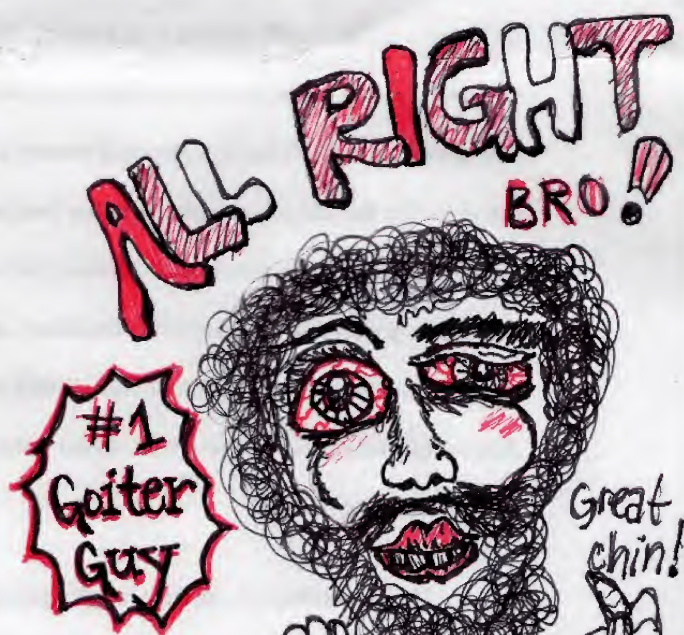 ALL RIGHT
BRO!
#1
Goiter
Guy
Great
chin!